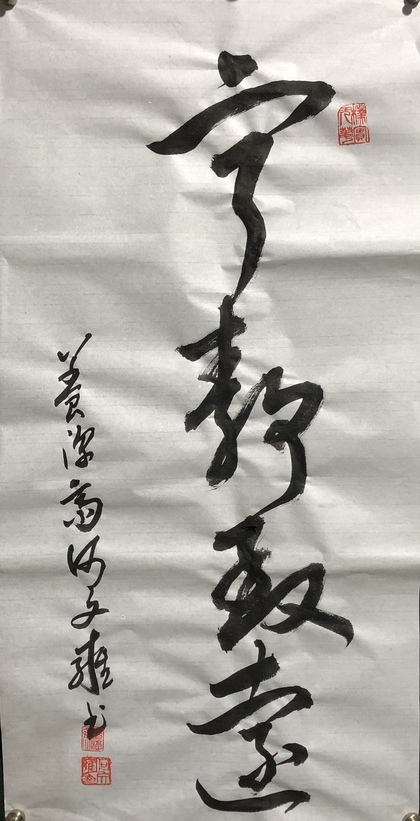 宁静致远
養深斋何文雅书